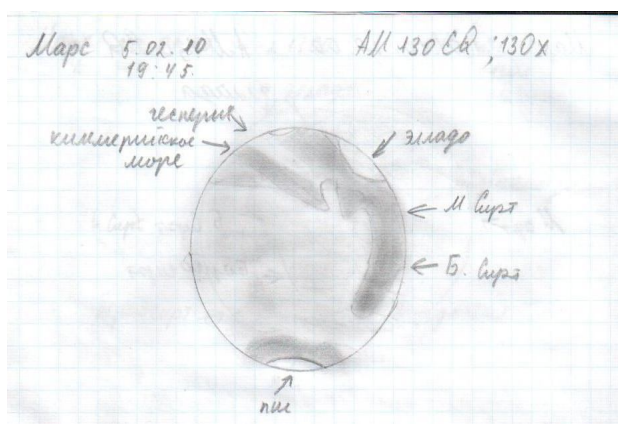 Марс 5.02.10 АМ 130 EQ ; 130x
19:45.
гесперия
киммерийское
море
эллада
М Сирт
Б. Сирт
пш